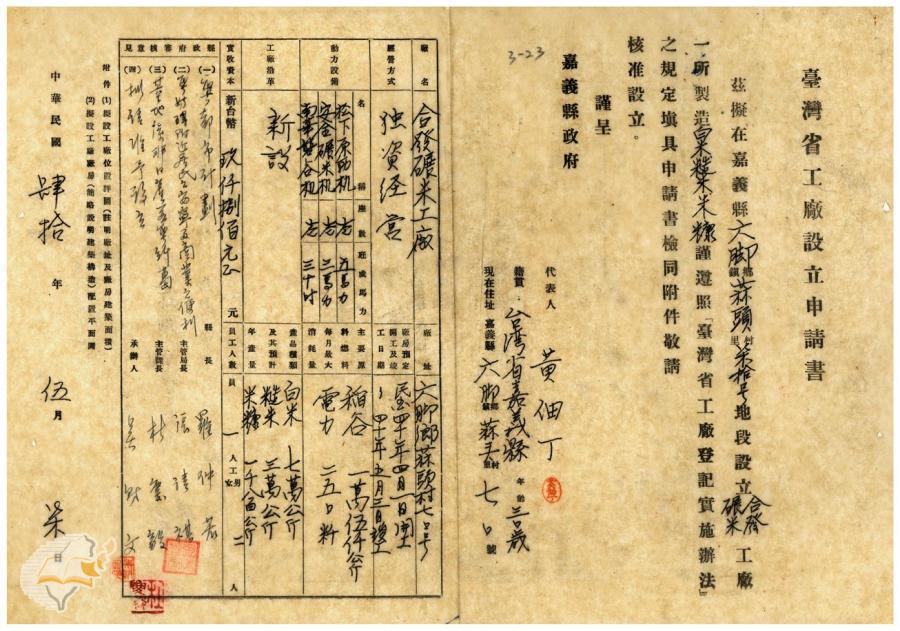 臺灣省工廠設立申請書
茲擬在嘉義縣六腳鄉鎮蒜頭村里柒拾号地段設立合發碾米工廠
一所製造白米糙米米糠謹遵照「臺灣省工廠登記實施辦法」
之規定填具申請書檢同附件敬請
核准設立。
謹呈
嘉義縣政府
3-23
代表人 黃佃丁 年齡三〇歲
籍貫 台灣省嘉義縣
現在住址 嘉義縣六腳鄉鎮蒜头村里七〇號
廠名 合發碾米工廠
廠址 六腳鄉蒜頭村七〇号
經營方式 独資経营
廠房預定開工及竣工日期 民国四十年四月一日開工 四十年五月三日竣工
動力設備 名稱 座數 匹或馬力
松下原動机 壱 五馬力
安全碾米机 壱 三馬力
壱 三十吋
主要原料總料每月最大消耗量 稲谷 一萬伍仟公斤
電力 二五〇料
工廠沿革 新設
產品種類及其預計年產量 白米 七萬公斤
糙米 三萬公斤
米糠 一千八百公斤
實收資本 新台幣 玖仟捌佰元正 元
員工人數 員 一 人 工 男 二 女 人
縣政府審核意見
(一)無都市計劃
(二)
(三)
(四)擬請准予設立
縣長 羅仲若
主管局長
主管課長 杜
承辦人 吳 文
附件 (1)擬設工廠位置詳圖(註明廠址及廠房建築面積)
(2)擬設工廠廠房(連絡設備建築構造)配置平面圖
中華民國 肆拾 年 伍 月 柒 日